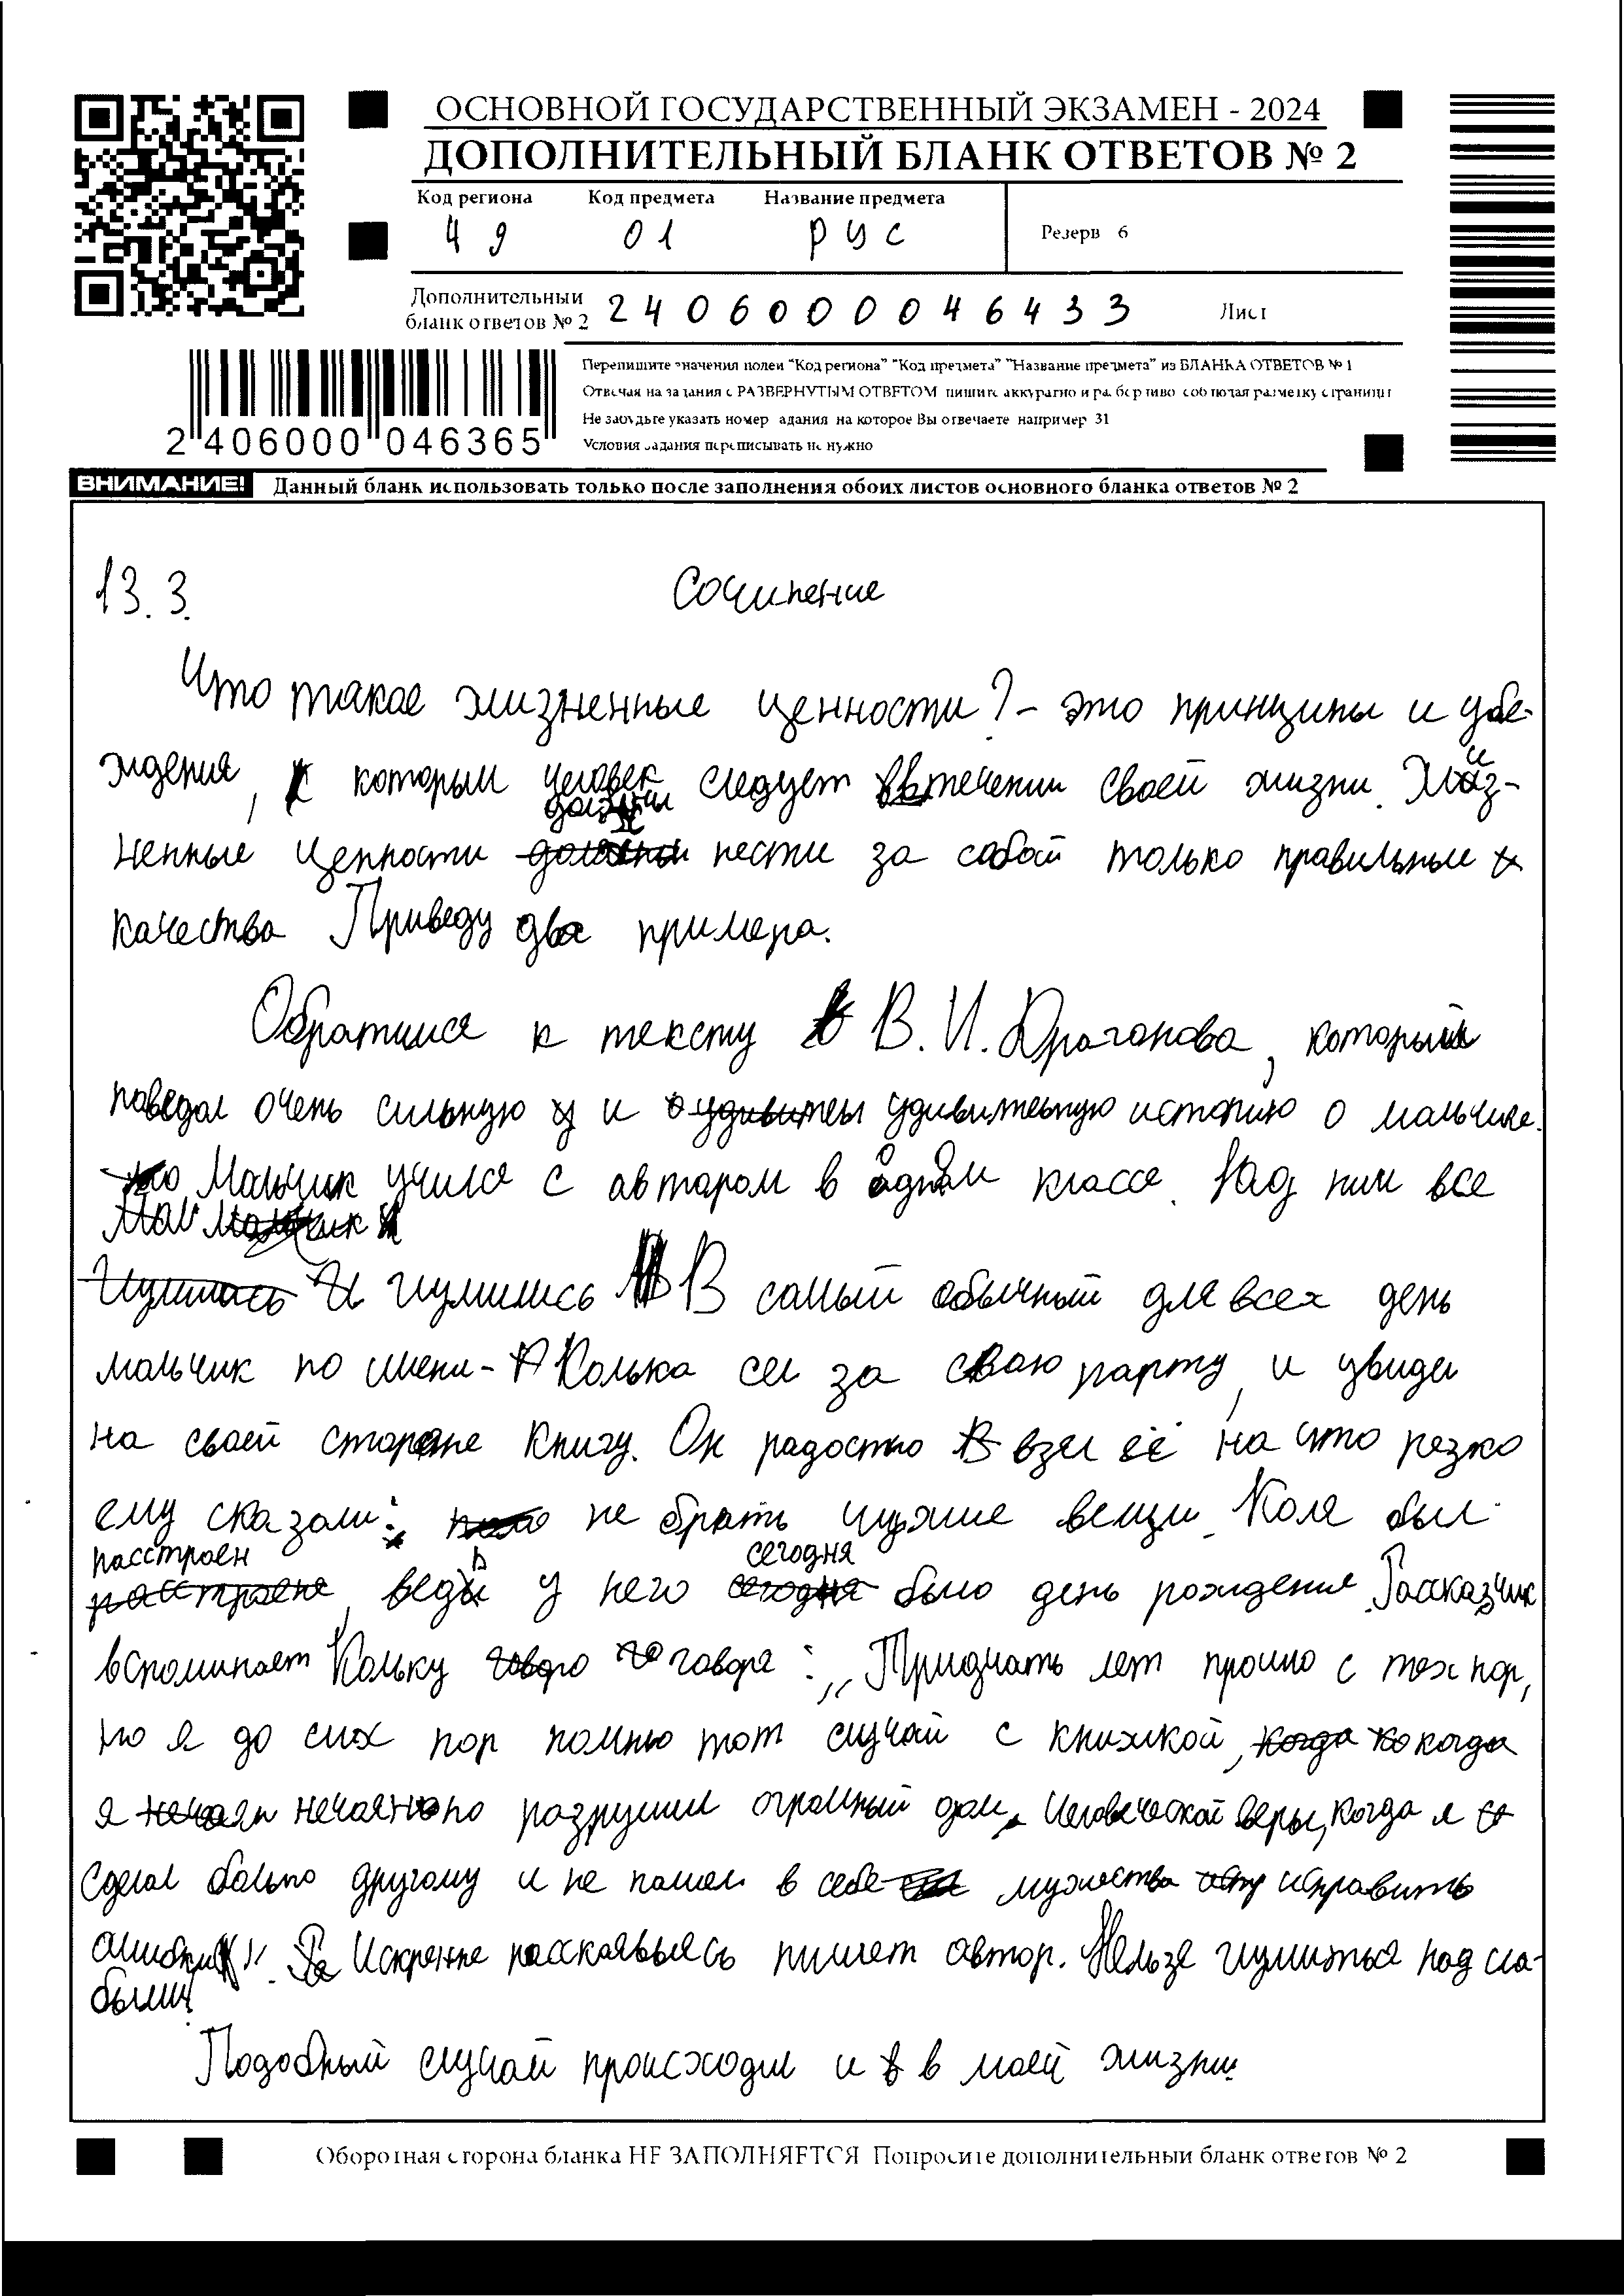 ОСНОВНОЙ ГОСУДАРСТВЕННЫЙ ЭКЗАМЕН - 2024
ДОПОЛНИТЕЛЬНЫЙ БЛАНК ОТВЕТОВ № 2
Код региона Код предмета Название предмета
49 01 РУС
Резерв 6
Дополнительный
бланк ответов № 2
2406000046433
Лист
Перепишите значения полей "Код региона" "Код предмета" "Название предмета" из БЛАНКА ОТВЕТОВ № 1
Отвечая на задания с РАЗВЕРНУТЫМ ОТВЕТОМ пишите аккуратно и разборчиво соблюдая разметку страницы
Не забудьте указать номер задания на которое Вы отвечаете например 31
Условия задания переписывать не нужно
2 406000 046365
ВНИМАНИЕ! Данный бланк использовать только после заполнения обоих листов основного бланка ответов № 2
13.3. Сочинение
Что такое жизненные ценности? - это принципы и убе-
ждения, которым человек следует втечении своей жизни. Жиз-
ненные ценности должны нести за собой только правильные
качества Приведу два примера.
Обратимся к тексту В. И. Драганова, который
поведал очень сильную и удивительную историю о мальчике.
Мальчик учился с автором в одном классе. Над ним все
И шумились В самый обычный для всех день
мальчик по имени - Колька сел за свою парту, и увидел
на своей стороне книгу. Он радостно взял её на что резко
ему сказали: не брать чужие вещи. Коля был
расстроен, ведь у него сегодня было день рождения. Рассказчик
вспоминает Кольку говоря: ,,Тридцать лет прошло с тех пор,
но я до сих пор помню тот случай с книжкой, когда
я нечаянно разрушил огромный дом человеческой веры, когда я
сделал больно другому и не нашел в себе мужества исправить
ошибки". Искренне расскаявыясь пишет автор. Нельзя шумиться над сла-
быми!
Подобный случай происходил и в моей жизни.
Оборотная сторона бланка НЕ ЗАПОЛНЯЕТСЯ Попросите дополнительный бланк ответов № 2